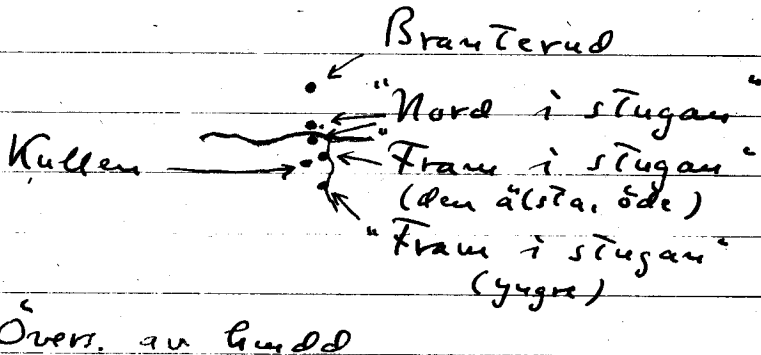 Branterud
"Nord i stugan"
Kullen
"Fram i stugan"
(den älsta, öde)
"Fram i stugan"
(yngre)
Övers. av